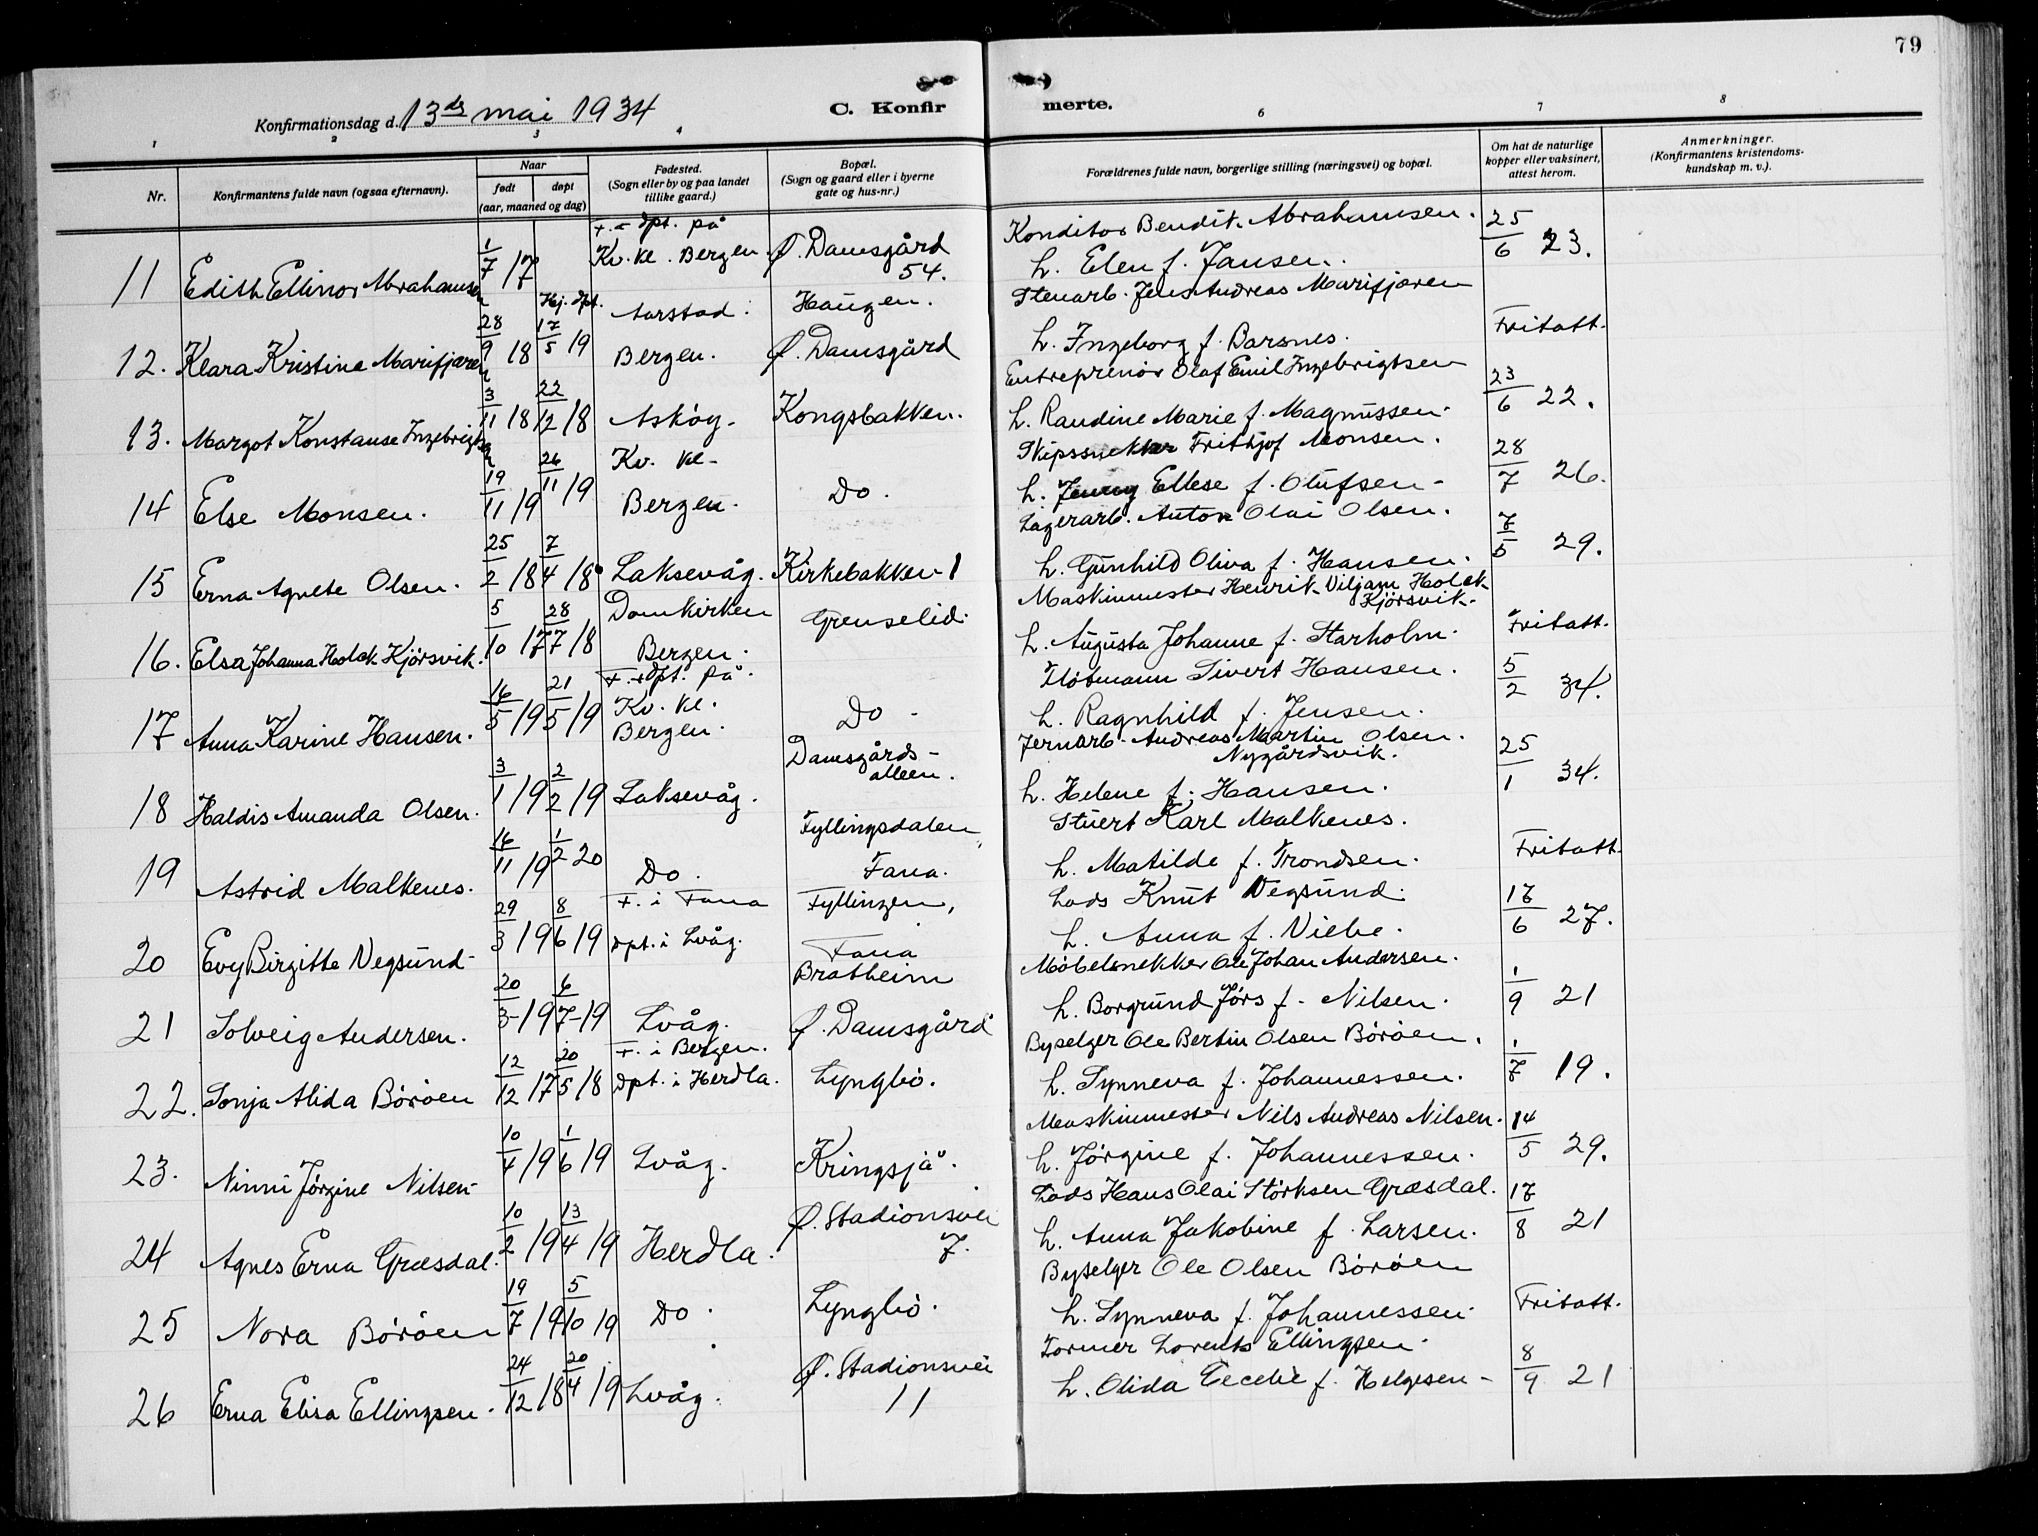 79
Konfirmationsdag d. 13de mai 1934
C. Konfirmerte.
1 2 3 4 6 7 8
Nr.
Konfirmantens fulde navn (ogsaa efternavn).
Naar
født
døpt
(aar, maaned og dag)
Fødested.
(Sogn eller by og paa landet
tillike gaard.)
Bopæl.
(Sogn og gaard eller i byerne
gate og hus-nr.)
Forældrenes fulde navn, borgerlige stilling (næringsvei) og bopæl.
Om hat de naturlige
kopper eller vaksinert,
attest herom.
Anmerkninger.
(Konfirmantens kristendoms-
kundskap m. v.).
11 Edith Ellinor Abrahamsen 1/7 17 F. + dpt. på Kv. kl. Bergen. Ø. Damsgård 54. Konditor Bendit. Abrahamsen. h. Elen f. Jansen. 25/6 23.
12. Klara Kristine Marifjæren 28/9 18 Hj. dpt. 17/5 19 Aarstad. Bergen. Haugen. Ø. Damsgård Stenarb. Jens Andreas Marifjæren h. Ingeborg f. Barsnes. Fritatt.
13. Margot Konstanse Ingebrigtsen 3/11 18 22/12 18 Askøy. Kongsbakken. Entreprenør Olaf Emil Ingebrigtsen h. Randine Marie f. Magnussen. 23/6 22.
14 Else Monsen. 19/11 19 26/11 19 Kv. kl. Bergen. Do. Skipssnekker Frithjof Monsen. h. Jenny Ellese f. Olufsen. 28/7 26.
15 Erna Agnete Olsen. 25/2 18 7/4 18 Laksevåg. Kirkebakken 1 Lagerarb. Anton Olai Olsen. h. Gunhild Oliva f. Hansen. 7/5 29.
16. Elsa Johanna Holck Kjørsvik. 5/10 17 28/7 18 Domkirken Bergen. Grenselid. Maskinmester Henrik Viljam Holck Kjørsvik. h. Augusta Johanne f. Starholm. Fritatt.
17 Anna Karine Hansen. 16/5 19 21/5 19 F. + dpt. på Kv. kl. Bergen. Do. Fløtmann Sivert Hansen. h. Ragnhild f. Jensen. 5/2 34.
18 Haldis Amanda Olsen. 3/1 19 2/2 19 Laksevåg. Damsgårdsalleen. Jernarb. Andreas Martin Olsen. Nygårdsvik. h. Helene f. Hansen. 25/1 34.
19 Astrid Malkenes. 16/11 19 1/2 20 Do. Fyllingsdalen, Fana. Stuert Karl Malkenes. h. Matilde f. Trondsen. Fritatt.
20 Evy Birgitte Vegsund 29/3 19 8/6 19 F. i Fana dpt. i Lvåg. Fyllingen, Fana Lods Knut Vegsund. h. Anna f. Vielie. 17/6 27.
21 Solveig Andersen. 20/3 19 6/7 19 Lvåg. Bratheim Ø. Damsgård Møbelsnekker Ole Johan Andersen. h. Borgrund Jørs f. Nilsen. 1/9 21
22. Sonja Alida Børøen 12/12 17 20/5 18 F. i Bergen. dpt. i Herdla. Lyngbø. Byselger Ole Bertin Olsen Børøen. h. Synneva f. Johannessen. 1/7 19.
23. Ninni Jørgine Nilsen 10/4 19 1/6 19 Lvåg. Kringsjå. Maskinmester Nils Andreas Nilsen. h. Jørgine f. Johannessen. 14/5 29.
24 Agnes Erna Græsdal. 10/2 19 13/4 19 Herdla. Ø. Stadionsvei 7. Lods Hans Olai Størksen Græsdal. h. Anna Jakobine f. Larsen. 17/8 21
25 Nora Børøen 19/7 19 5/10 19 Do. Lyngbø. Byselger Ole Olsen Børøen h. Synneva f. Johannessen. Fritatt.
26 Erna Elisa Ellingsen. 24/12 18 20/4 19 Lvåg. Ø. Stadionsvei 11 Former Lorents Ellingsen h. Olida Cecelie f. Helgesen 8/9 21